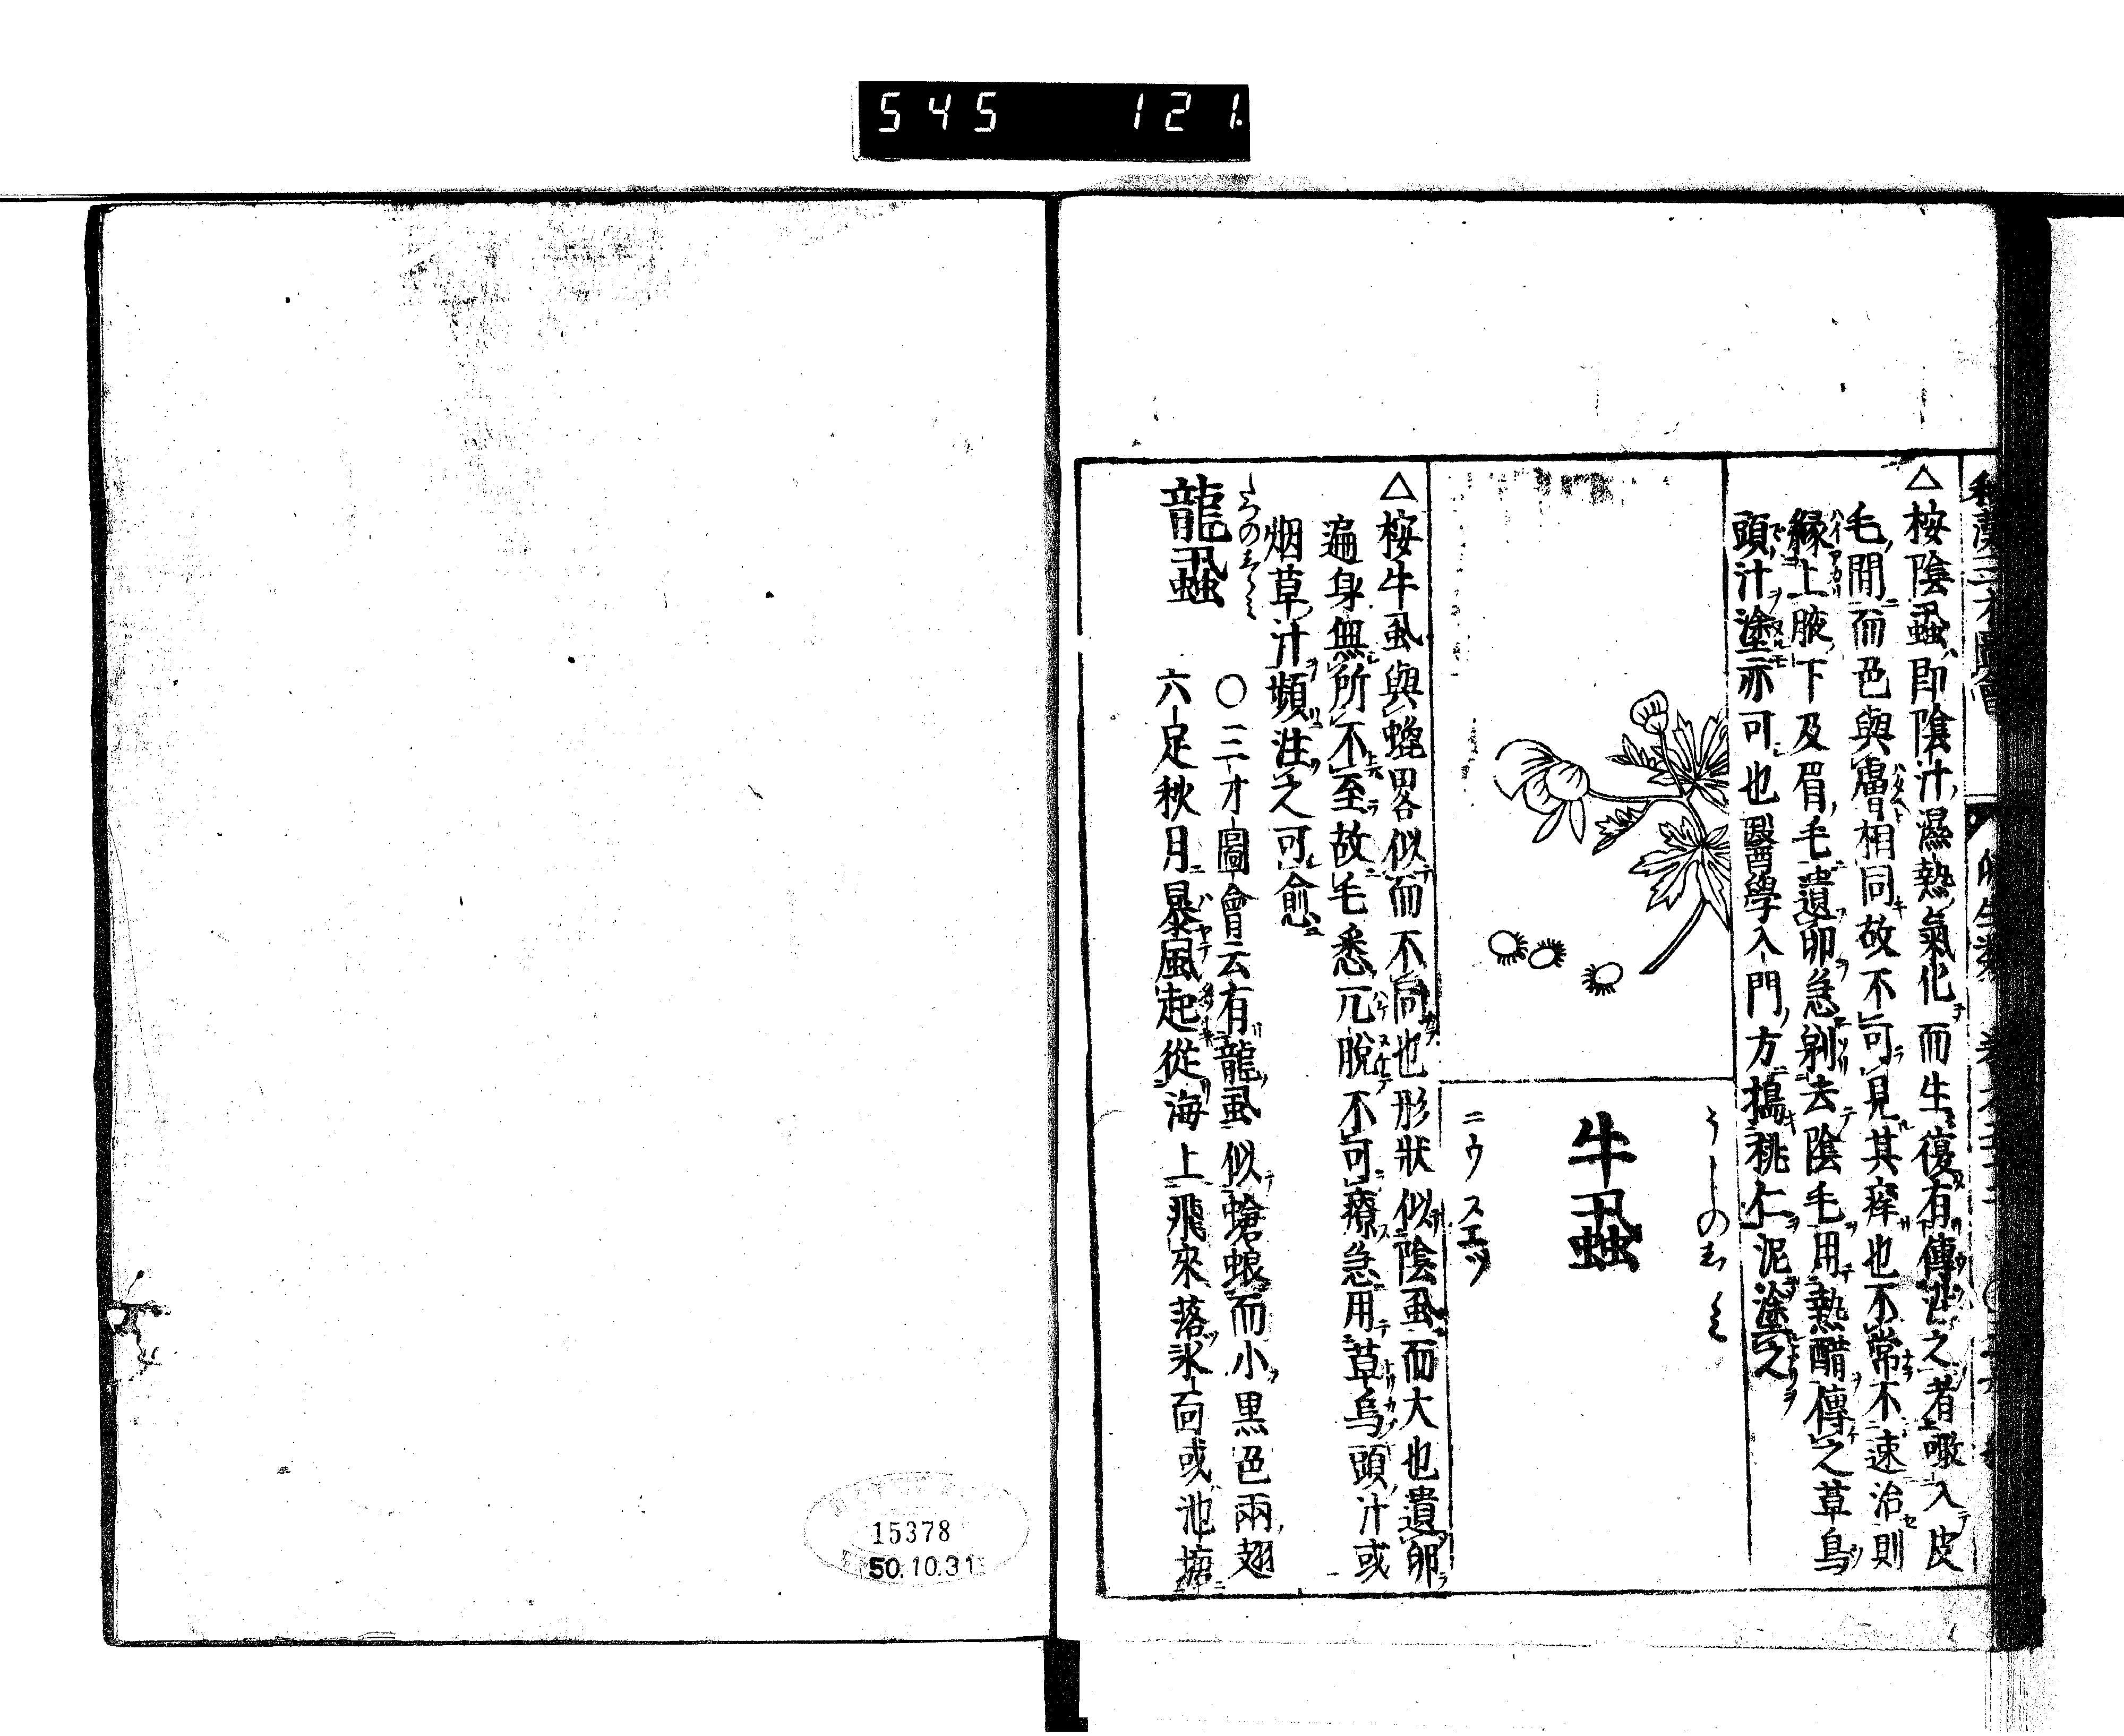 545 121.
△桉陰蝨即陰汁濕熱氣化而生復有傳泄之者噉入皮
毛間而色與膚相同故不可見其痒也不常不速治則
緣上腋下及眉毛遺卵急剃去陰毛用熱醋傅之草烏
頭汁塗亦可也醫學入門方搗桃仁泥塗之
うしのしらみ
牛蝨
ニウスエツ
△桉牛虱與螕畧似而不同也形狀似陰虱而大也遺卵
遍身無所不至故毛悉兀脫不可療急用草烏頭汁或
烟草汁頻注之可愈
たつのしらみ
龍蝨
○三才圖會云有龍虱似蜣蜋而小黒色兩翅
六足秋月暴風起從海上飛來落水面或池塘
15378
50.10.31